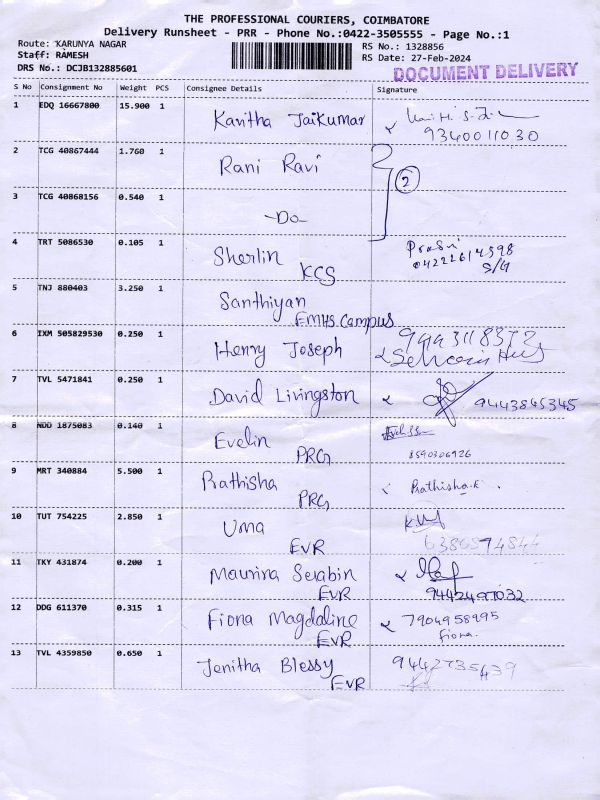 THE PROFESSIONAL COURIERS, COIMBATORE
Delivery Runsheet - PRR - Phone No.:0422-3505555 - Page No.:1
Route: KARUNYA NAGAR
Staff: RAMESH
DRS No.: DCJB132885601
RS No.: 1328856
RS Date: 27-Feb-2024
DOCUMENT DELIVERY
S No Consignment No Weight PCS Consignee Details Signature
1 EDQ 16667800 15.900 1 Kanitha Jaikumar
9340011030
2 TCG 40867444 1.760 1 Rani Ravi
2
3 TCG 40868156 0.540 1 -Do-
4 TRT 5086530 0.105 1 Sherlin
KCS
04222614598
S/G
5 TNJ 880403 3.250 1 Santhiyan
EMHS.Campus
6 IXM 505829530 0.250 1 Henry Joseph
9443118372
7 TVL 5471841 0.250 1 David Livingston 9443845345
8 NDD 1875083 0.140 1 Evelin
PRG
8590306926
9 MRT 340884 5.500 1 Prathisha
PRG
Prathisha.E.
10 TUT 754225 2.850 1 Uma
EVR
11 TKY 431874 0.200 1 Maurina Serabin
EVR
9442497032
12 DDG 611370 0.315 1 Fiona Magdaline
EVR
7904958995
Fiona.
13 TVL 4359850 0.650 1 Jenitha Blessy
EVR